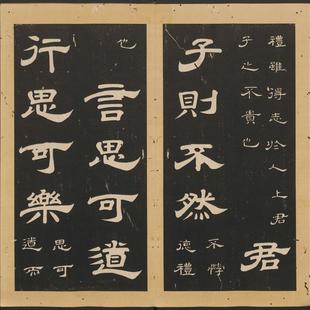 禮雖得志於人上君
子之不貴也
君
子則不然
不悖
德禮
也
言思可道
行思可樂
思可
道而